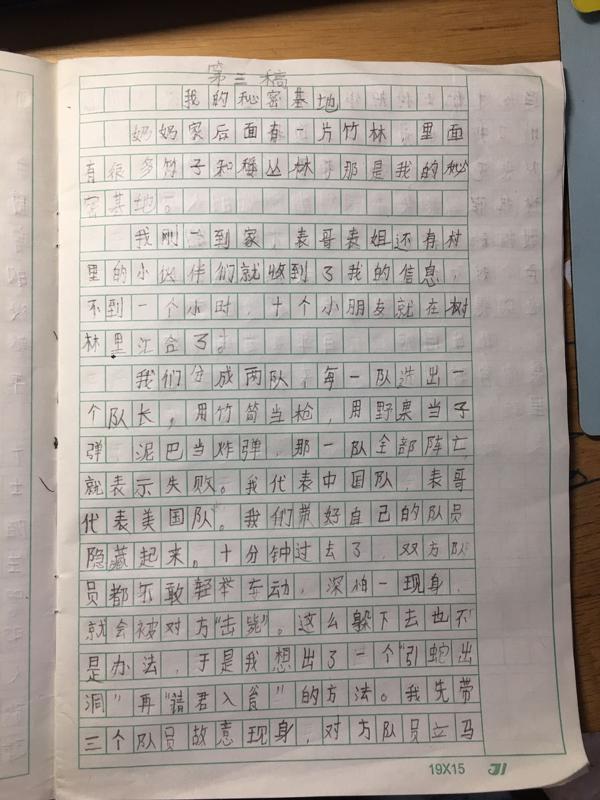 第三稿
我的秘密基地
奶奶家后面有一片竹林，里面
有很多竹子和种丛林，那是我的秘
密基地。
我刚一到家，表哥表姐还有村
里的小伙伴们就收到了我的信息，
不到一个小时，十个小朋友就在树
林里汇合了。
我们分成两队，每一队选出一
个队长，用竹筒当枪，用野果当子
弹，泥巴当炸弹，那一队全部阵亡，
就表示失败。我代表中国队，表哥
代表美国队。我们带好自己的队员
隐藏起来。十分钟过去了，双方队
员都不敢轻举妄动，深怕一现身，
就会被对方“击毙”。这么躲下去也不
是办法，于是我想出了一个“引蛇出
洞”再“请君入瓮”的方法。我先带
三个队员故意现身，对方队员立马
19X15